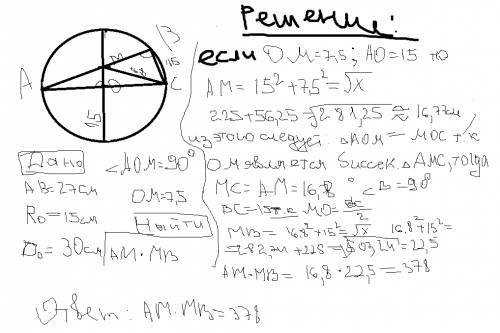 Решении:
если OM=7,5; AO=15 то
AM=15²+7,5²=√x
225+56,25=√281,25≈16,77см
из этого следует: △AOM=MOC т.к
OM является биссек. △AMC, тогда
MC=AM=16,8 ∠B=90°
BC=15 т.к MO=BC/2
MB=16,8²+15²=√x 16,8²+15²=
=282,24+225=√503,24=22,5
AM·MB=16,8·22,5=378
A
B
C
M
O
15
16,8
15
Дано ∠AOM=90°
AB=27см OM=7,5
R₀=15см
D₀=30см
Найти
AM·MB
Ответ: AM·MB=378